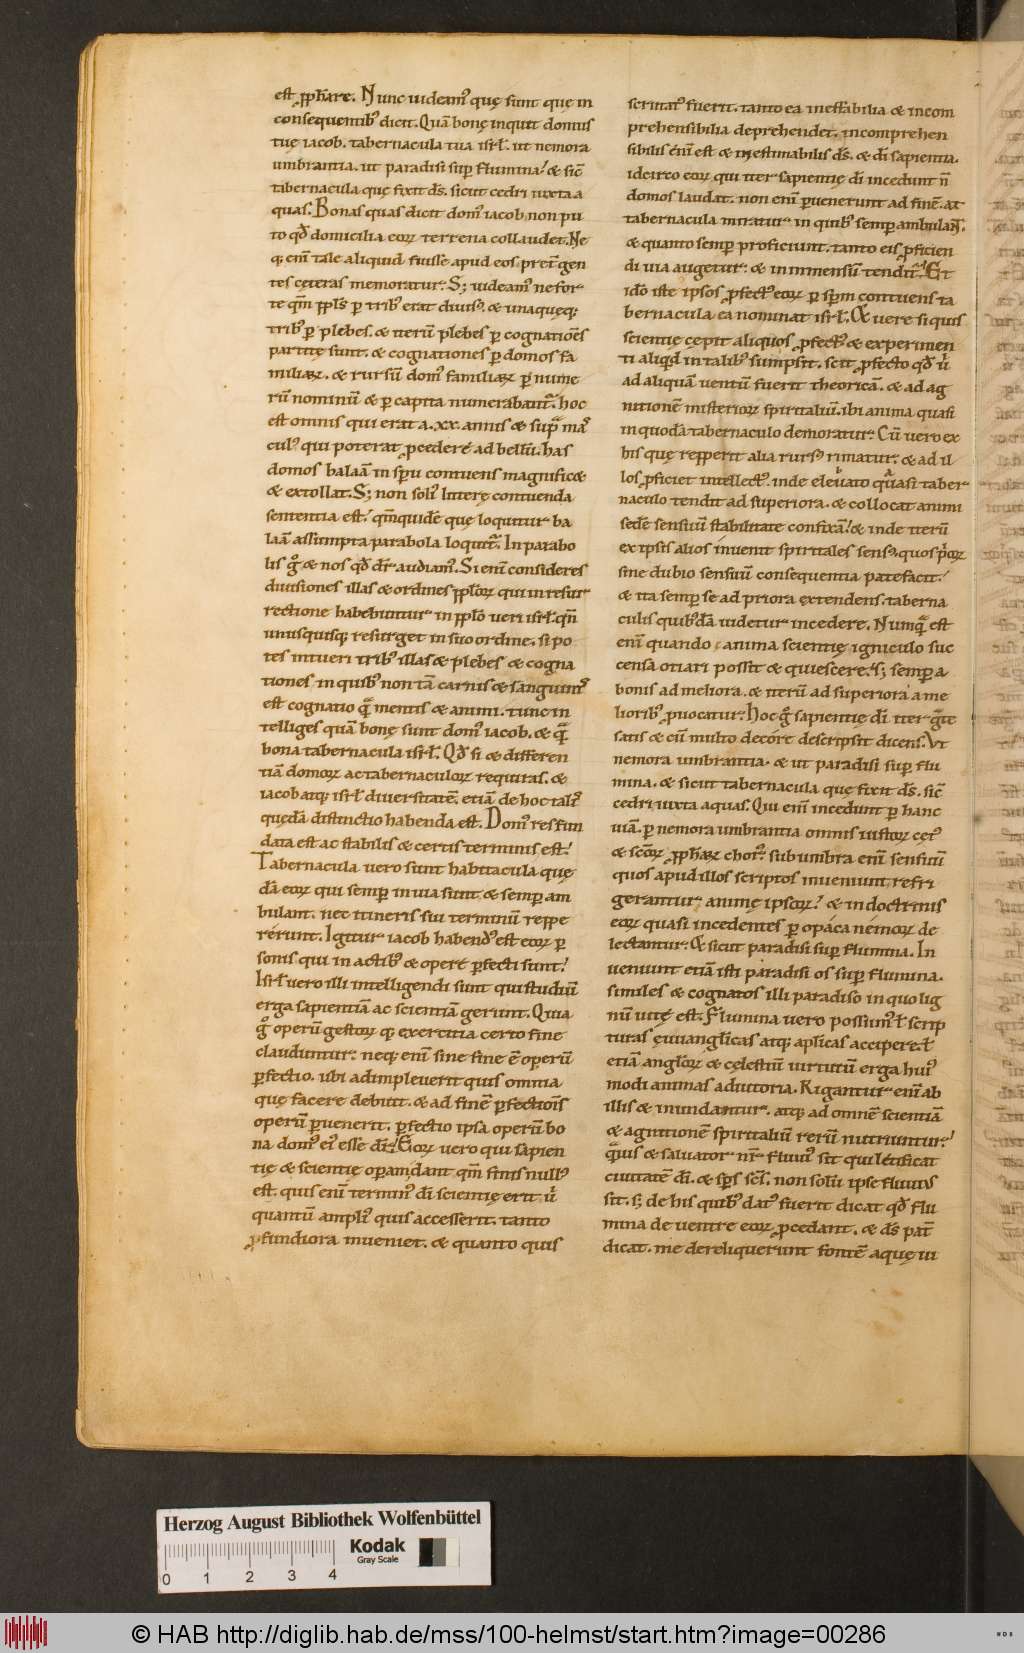 est ꝓph&are. Nunc uideamꝰ quę sunt que in
consequentibꝰ dicit. Quā bonę inquit domus
tuę iacob. tabernacula tua isrł. ut nemora
umbrantia. ut paradisi sup̄ flumina. & sic̄
tabernacula quę fixit dn̄s. sicut cedri iuxta a
quas. Bonas quas dicit domꝰ iacob non pu
to qđ domicilia eoꝝ terrena collaudet. Ne
q; eni᷒ tale aliquid fuisse apud eos pret̄ gen
tes cęteras memoratur. S; uideamꝰ ne for
te qm̄ ppl's ꝑ tribꝰ erat diuisꝰ. & unaquęq;
tribꝰ ꝑ plebes. & iterū plebes ꝑ cognatiōes
partitę sunt. & cognationes ꝑ domos fa
miliaꝝ. & rursū domꝰ familiaꝝ ꝑ nume
rū nominū & ꝑ capita numerabant᷑. hoc
est omnis qui erat a .xx. annis & sup̄ mas
culꝰ qui poterat ꝓcedere ad bellū. has
domos balaā in sp̄u contuens magnific&
& extollat. S; non solū litterę contuenda
sententia est. qm̄quidē quę loquitur ba
laā assumpta parabola loquit᷑. In parabo
lis g̊ & nos qđ dr̄ audiamꝰ. Si eni᷒ consideres
diuisiones illas & ordines pploꝝ qui in resur
rectione habebuntur in pplo ueri isrł. qn̄
unusquisq; resurget in suo ordine. si po
tes intueri tribꝰ illas & plebes & cogna
tiones in quibꝰ non tā carnis & sanguinis
est cognatio quā mentis & animi. tunc in
telliges quā bonę sunt domꝰ iacob. & quā
bona tabernacula isrł. Qđ si & differen
tiā domoꝝ ac tabernaculoꝝ requiras. &
iacob atq; isrł diuersitatē. etiā de hoc talis
quędā distinctio habenda est. Domꝰ res fun
data est ac stabilis & certis terminis est.
Tabernacula uero sunt habitacula quę
dā eoꝝ qui semp̄ in uia sunt & semp̄ am
bulant. nec itineris sui terminū reppe
rerunt. Igitur iacob habendꝰ est eoꝝ ꝑ
sonis. qui in actibꝰ & opere ꝑfecti sunt.
Isrł uero illi intelligendi sunt qui studiū
erga sapientiā ac scientiā gerunt. Quia
g̊ operū gestoꝝ q; exercitia certo fine
clauduntur. neq; eni᷒ sine fine ē operū
ꝑfectio. ubi adimpleuerit quis omnia
quę facere debuit. & ad finē ꝑfectiōis
operū ꝑuenerit. ꝑfectio ipsa operū bo
na domꝰ ei᷒ esse dr̄. Eoꝝ uero qui sapien
tię & scientię operam dant qm̄ finis nullꝰ
est. quis eni᷒ terminꝰ di᷒ scientię erit u᷒
quantū amplꝰ quis accesserit. tanto
ꝓfundiora inueniet. & quanto quis
scrutatꝰ fuerit. tanto ea ineffabilia & incom
prehensibilia deprehendet. incomprehen
sibilis eni᷒ est & inestimabilis dn̄s. & di᷒ sapientia.
idcirco eoꝝ qui iter sapientię di᷒ incedunt n̄
domos laudat. non eni᷒ ꝑuenerunt ad finē. at
tabernacula miratur in quibꝰ semp̄ ambulan̄t.
& quanto semp̄ proficiunt. tanto eis ꝓficien
di uia augetur. & in inmensū tendit᷑. Et
ido᷒ iste ipsos ꝓfectꝰ eoꝝ ꝑ sp̄m contuens ta
bernacula ea nominat isrł. Et uere si quis
scientię cępit aliquos ꝓfectꝰ & experimen
ti aliqđ in talibꝰ sumpsit. scit ꝓfecto qđ u᷒
ad aliquā uentū fuerit theoricā. & ad ag
nitionē misterioꝝ spiritaliū. ibi anima quasi
in quodā tabernaculo demoratur. Cū uero ex
his quę repperit alia rursꝰ rimatur. & ad il
los ꝓficiet intellectꝰ. inde eleuato quasi taber
naculo tendit ad superiora. & collocat animi
sedē sensuū stabilitate confixā. & inde iterū
ex ipsis alios inuenit spiritales sensꝰ. quos prioꝝ
sine dubio sensuū consequentia patefacit.
& ita semp̄ se ad priora extendens. taberna
culis quibꝰdā uidetur incedere. Numquā est
eni᷒ quando anima scientię igniculo suc
censa otiari possit & quiescere. s; semp̄ a
bonis ad meliora. & iterū ad superiora a me
lioribꝰ ꝓuocatur. Hoc g̊ sapientię di᷒ iter grate
satis & cū multo decore descripsit dicens. Vt
nemora umbrantia. & ut paradisi sup̄ flu
mina. & sicut tabernacula quę fixit dn̄s. sic̄
cedri iuxta aquas. Qui eni᷒ incedunt ꝑ hanc
uiā. ꝑ nemora umbrantia omnis iustoꝝ cętꝰ
& sc̄oꝝ ꝓph&aꝝ chorꝰ. sub umbra eni᷒ sensuū
quos apud illos scriptos inueniunt refri
gerantur animę ipsoꝝ. & in doctrinis
eoꝝ quasi incedentes ꝑ opaca nemoꝝ de
lectantur. Et sicut paradisi sup̄ flumina. In
ueniunt etiā isti paradisi os sup̄ flumina.
similes & cognatos illi paradiso in quo lig
nū uitę est. Flumina uero possumꝰ ł scrip
turas ęuuanglicas atq; aplicas accipere. ł
etiā angloꝝ & cęlestiū uirtutū erga huiꝰ
modi animas adiutoria. Rigantur eni᷒ ab
illis & inundantur. atq; ad omnē scientiā
& agnitionē spiritaliū rerū nutriuntur.
Quāuis & saluator nr̄ fluuiꝰ sit qui lętificat
ciuitatē di᷒. & sp̄s sc̄s. non solū ipse fluuius
sit. s; de his quibꝰ datꝰ fuerit dicat qđ flu
mina de uentre eoꝝ ꝓcedant. & dn̄s pat̄
dicat. me dereliquerunt fontē aquę ui
Herzog August Bibliothek Wolfenbüttel
Kodak
Gray Scale
0 1 2 3 4
© HAB http://diglib.hab.de/mss/100-helmst/start.htm?image=00286